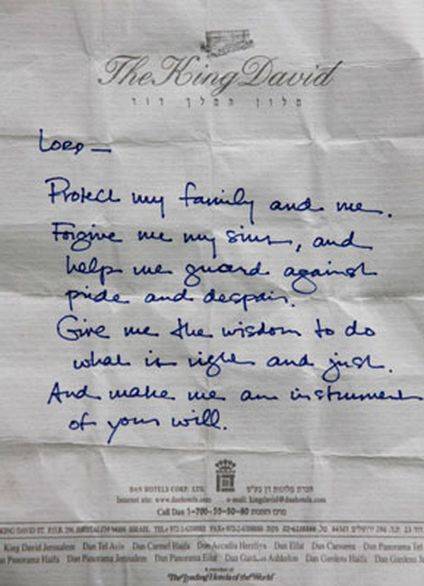 The King David
מלון המלך דוד
Lord —
Protect my family and me.
Forgive me my sins, and
help me guard against
pride and despair.
Give me the wisdom to do
what is right and just.
And make me an instrument
of your will.
DAN HOTELS CORP. LTD. חברת מלונות דן בע"מ
Internet site: www.danhotels.com e-mail: kingdavid@danhotels.com
Call Dan 1-700-50-50-80
KING DAVID ST. JERUSALEM ISRAEL
King David Jerusalem Dan Tel Aviv Dan Carmel Haifa Dan Accadia Herzliya Dan Eilat Dan Caesarea Dan Panorama Tel
Dan Panorama Haifa Dan Panorama Jerusalem Dan Panorama Eilat Dan Gardens Ashkelon Dan Gardens Haifa
A member of
"The Leading Hotels of the World"